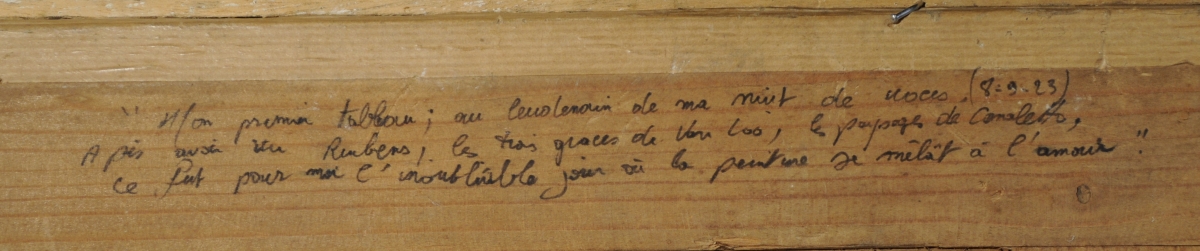 " Mon premier tableau ; au lendemain de ma nuit de noces. (8-9-23)
Après avoir vu Rubens, les trois graces de Van Loo, les paysages de Canaletto,
ce fut pour moi l'inoubliable jour où la peinture se mêlât à l'amour. "